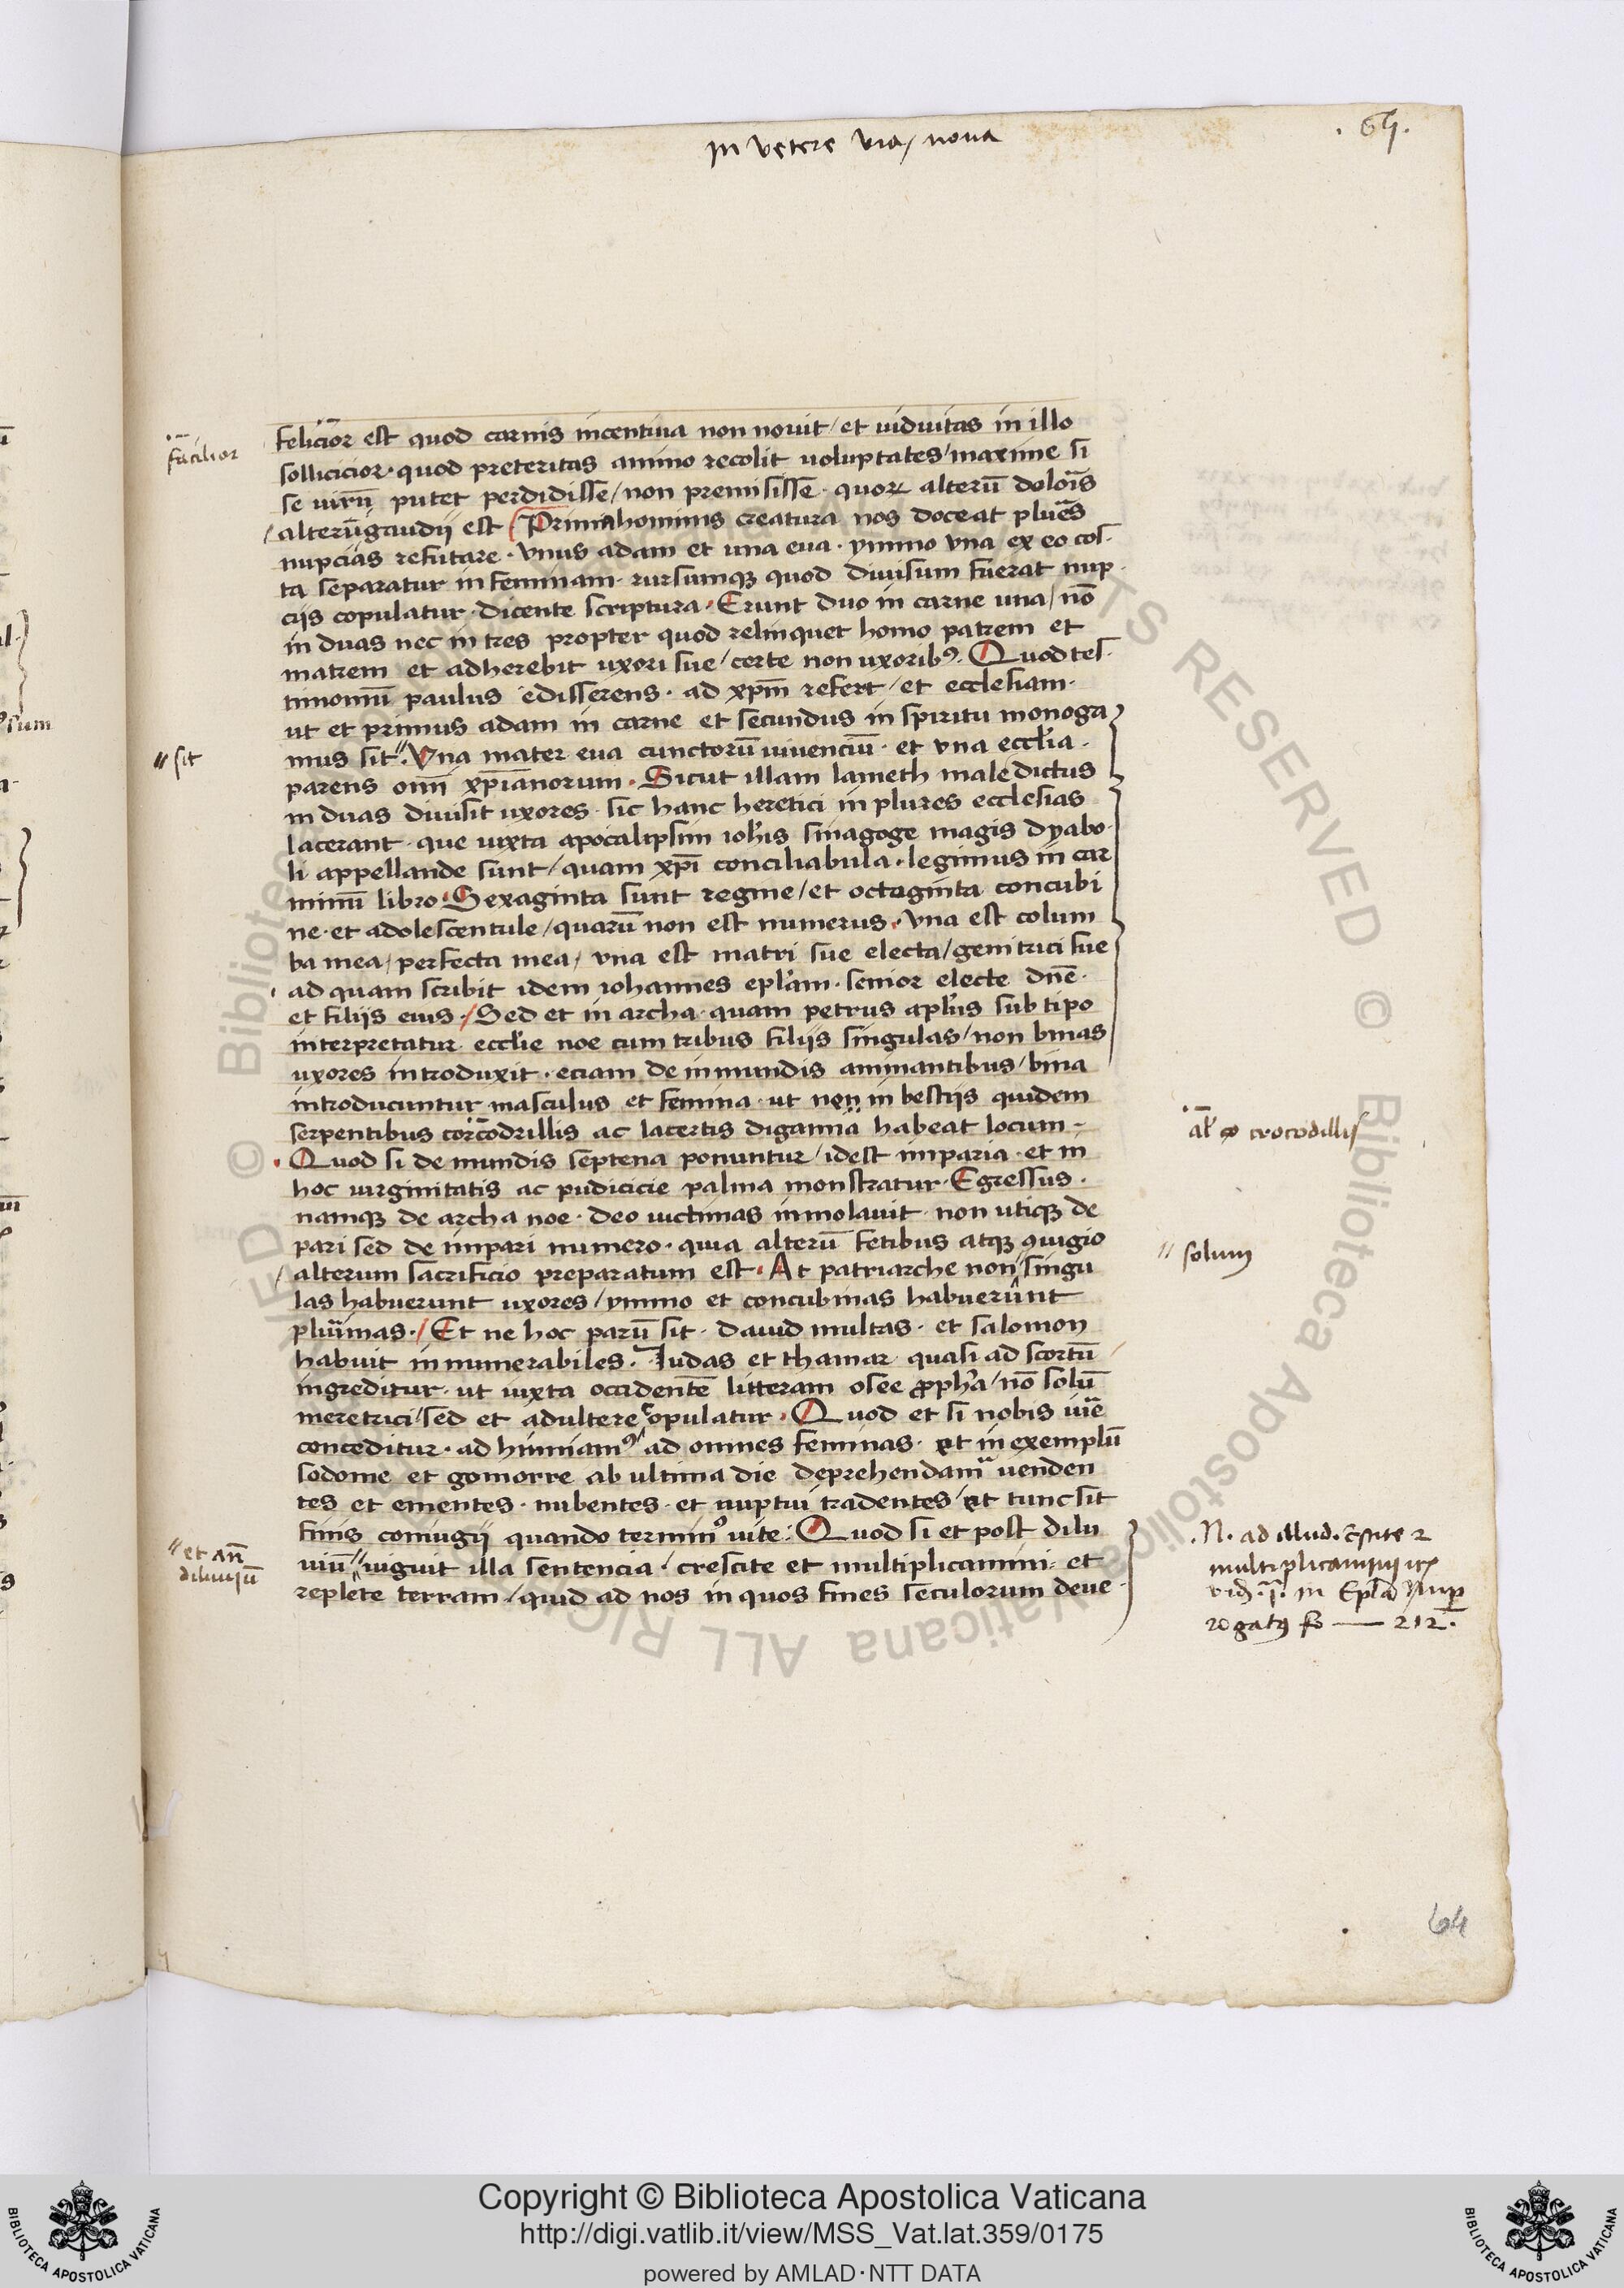 in vetere via / nova
. 64 .
felicior est quod carnis incentiva non novit / et viduitas in illo
facilior
sollicicior · quod preteritas animo recolit voluptates / maxime si
se virū putet perdidisse / non premisisse · quoꝝ alterū dolois̄
/ alterū gaudij est Prima hominis creatura nos doceat plūes
nupcias refutare · Unus adam et una eva · ymmo vna ex eo cos-
ta separatur in feminam · rursumqꝫ quod divisum fuerat nup-
ciis copulatur · dicente scriptura · Erunt duo in carne una / nō
in duas nec in tres propter quod relinquet homo patrem et
matrem et adherebit uxori sue / certe non uxoribꝰ · Quod tes-
timoniū paulus edisserens · ad xpm̄ refert / et ecclesiam ·
ut et primus adam in carne et secundus in spiritu monoga
mus sit · Una mater eva cunctorū vivenciū · et vna ecclīa ·
// sit
parens oni̅ xpīanorum · Sicut illam lameth maledictus
in duas divisit uxores · sic hanc heretici in plures ecclesias
lacerant · que iuxta apocalipsim ioh̄is sinagoge magis dyabo-
li appellande sunt / quam xpī conciliabula · legimus in car
minū libro · Sexaginta sunt regine / et octaginta concubi
ne · et adolescentule / quarū non est numerus · Vna est colum
ba mea / perfecta mea / vna est matri sue electa / genitrici sue
ad quam scribit idem iohannes epl̄am · senior electe dn̄e ·
et filiis eius · / Sed et in archa · quam petrus apl̄us sub tipo
interpretatur eccl̄ie noe cum tribus filiis singulas / non binas
uxores introduxit · eciam de inmundis animantibus / bina
introducuntur masculus et femina · ut non in bestiis quidem
serpentibus corcodrillis ac lacertis digamia habeat locum ·
al' crocodillis
Quod si de mundis septena ponuntur / idest imparia · et in
hoc virginitatis ac pudicicie palma monstratur · Egressus ·
namqꝫ de archa noe · deo victimas inmolavit · non utiqꝫ de
pari sed de impari numero · quia alterū fetibus atqꝫ ꝯiugio
// solum
/ alterum sacrificio preparatum est · At patriarche non singu
las habuerunt uxores / ymmo et concubinas habuerunt
pluīmas · / Et ne hoc parū sit · david multas · et salomon
habuit innumerabiles · Iudas et thamar quasi ad scortū
ingreditur · ut iuxta occidentē litteram osee ꝓph̄a / nō solū
meretrici / sed et adultere copulatur · Quod et si nobis iūe
conceditur · ad hinniamꝰ ad omnes feminas · et in exemplū
sodome et gomorre ab ultima die deprehendamꝰ venden
tes et ementes · nubentes · et nuptui tradentes / et tunc sit
finis coniugij quando terminꝰ vite : Quod si et post dilu
viū // viguit illa sentencia · crescite et multiplicamini · et
// et an̄
diluuiū
replete terram / quid ad nos in quos fines seculorum deve-
. N. ad illud. Cs̄cite ⁊
multiplicamini
in Epl̄a Nuꝑ
rogatꝰ fo — 212.
64
Copyright © Biblioteca Apostolica Vaticana
http://digi.vatlib.it/view/MSS_Vat.lat.359/0175
powered by AMLAD·NTT DATA